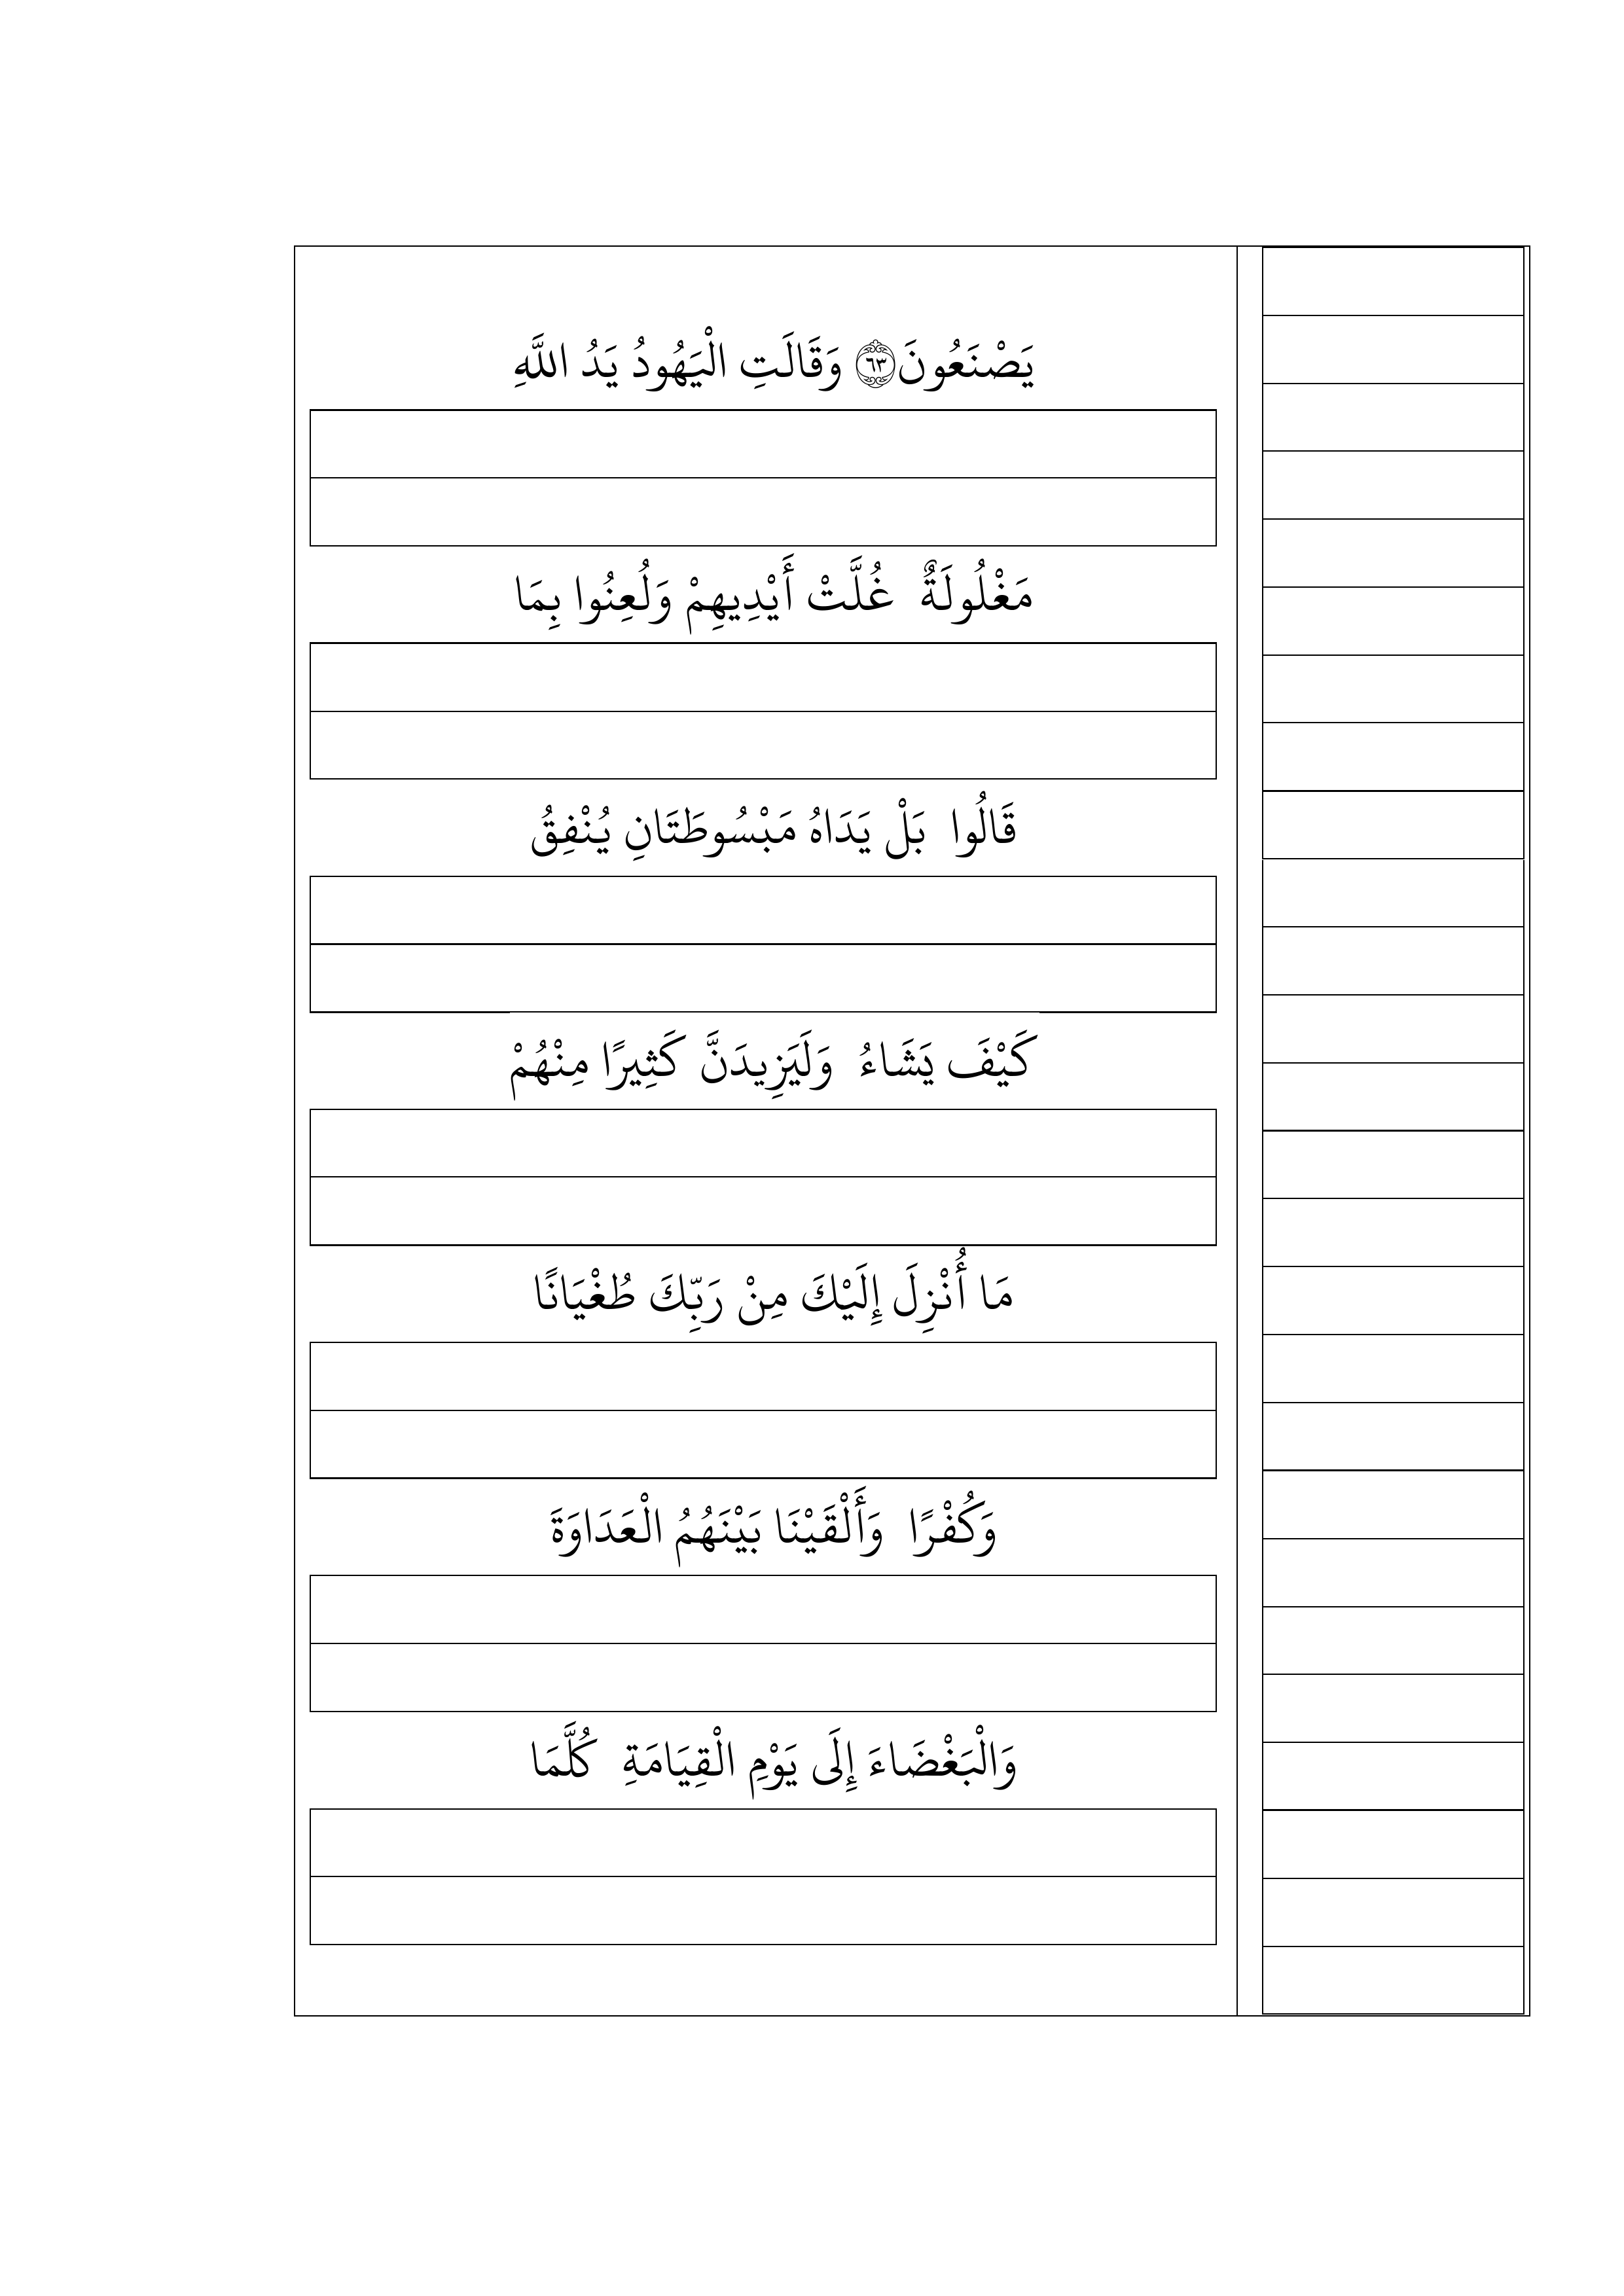 يَصْنَعُونَ ﴿٦٣﴾ وَقَالَتِ الْيَهُودُ يَدُ اللَّهِ
مَغْلُولَةٌ غُلَّتْ أَيْدِيهِمْ وَلُعِنُوا بِمَا
قَالُوا بَلْ يَدَاهُ مَبْسُوطَتَانِ يُنْفِقُ
كَيْفَ يَشَاءُ وَلَيَزِيدَنَّ كَثِيرًا مِنْهُمْ
مَا أُنْزِلَ إِلَيْكَ مِنْ رَبِّكَ طُغْيَانًا
وَكُفْرًا وَأَلْقَيْنَا بَيْنَهُمُ الْعَدَاوَةَ
وَالْبَغْضَاءَ إِلَى يَوْمِ الْقِيَامَةِ كُلَّمَا